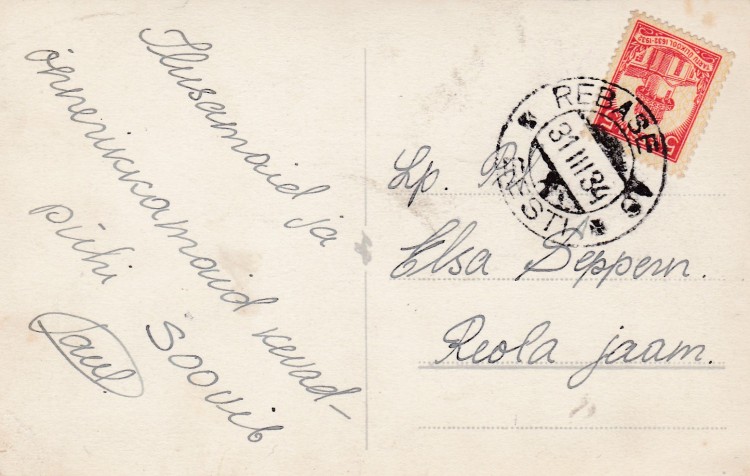 Ilusamaid ja
õnnerikkamaid kevad-
pühi soovib
Paul.
Lp. Prl.
Elsa Seppern.
Reola jaam.
REBASE
31 III 34
EESTI
TARTU ÜLIKOOL 1632-1932
5